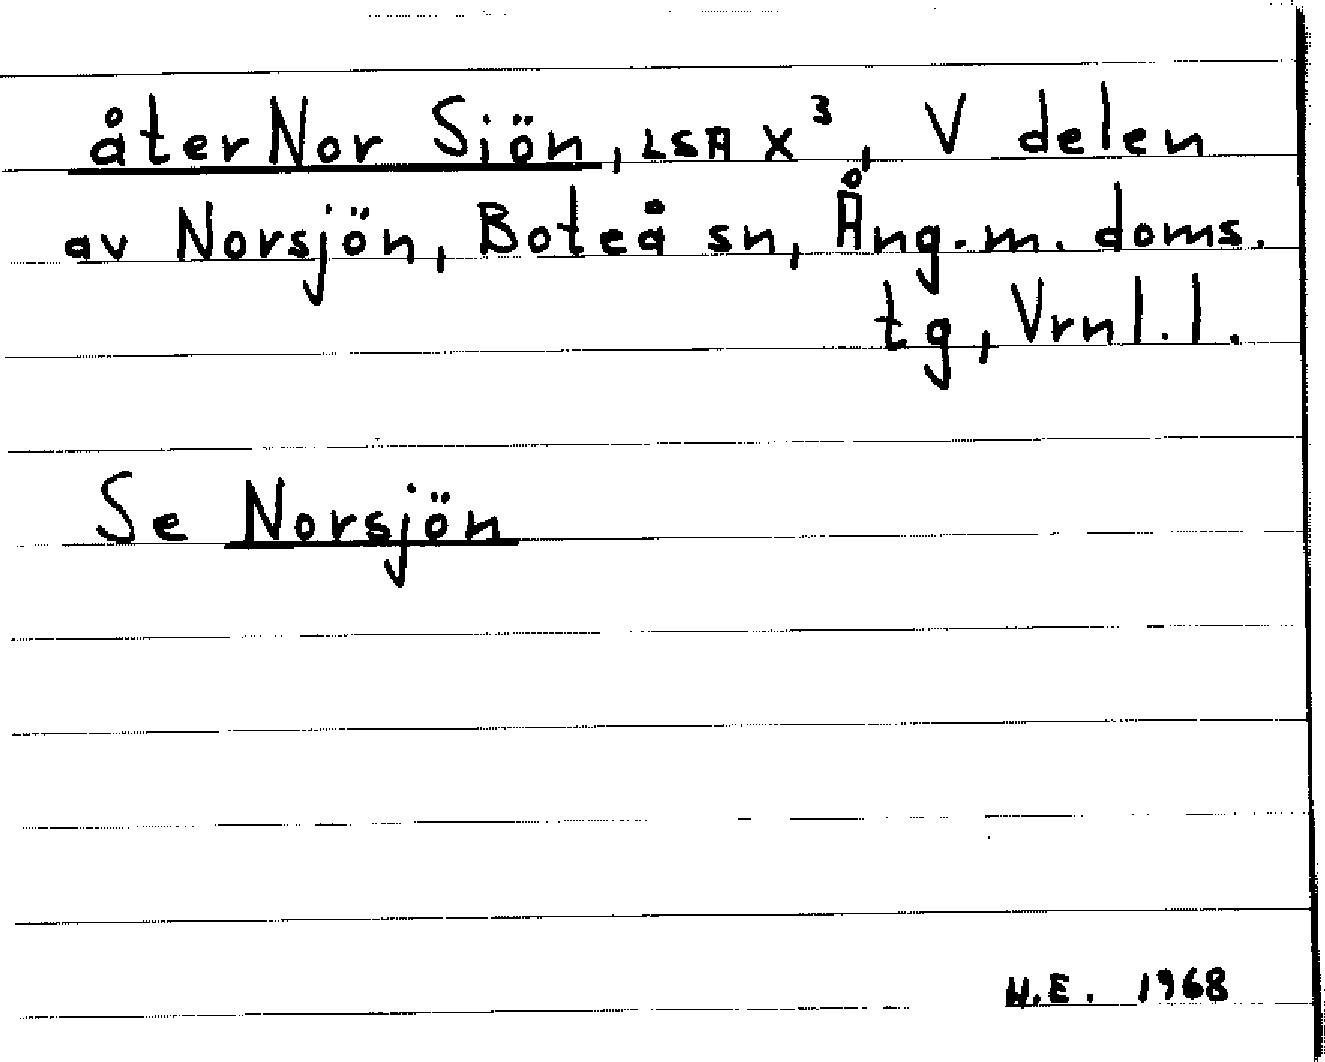 åter Nor Siön, LSA X³, V delen
av Norsjön, Boteå sn, Ång. m. doms.
tg, Vrnl. l.
Se Norsjön
W.E. 1968